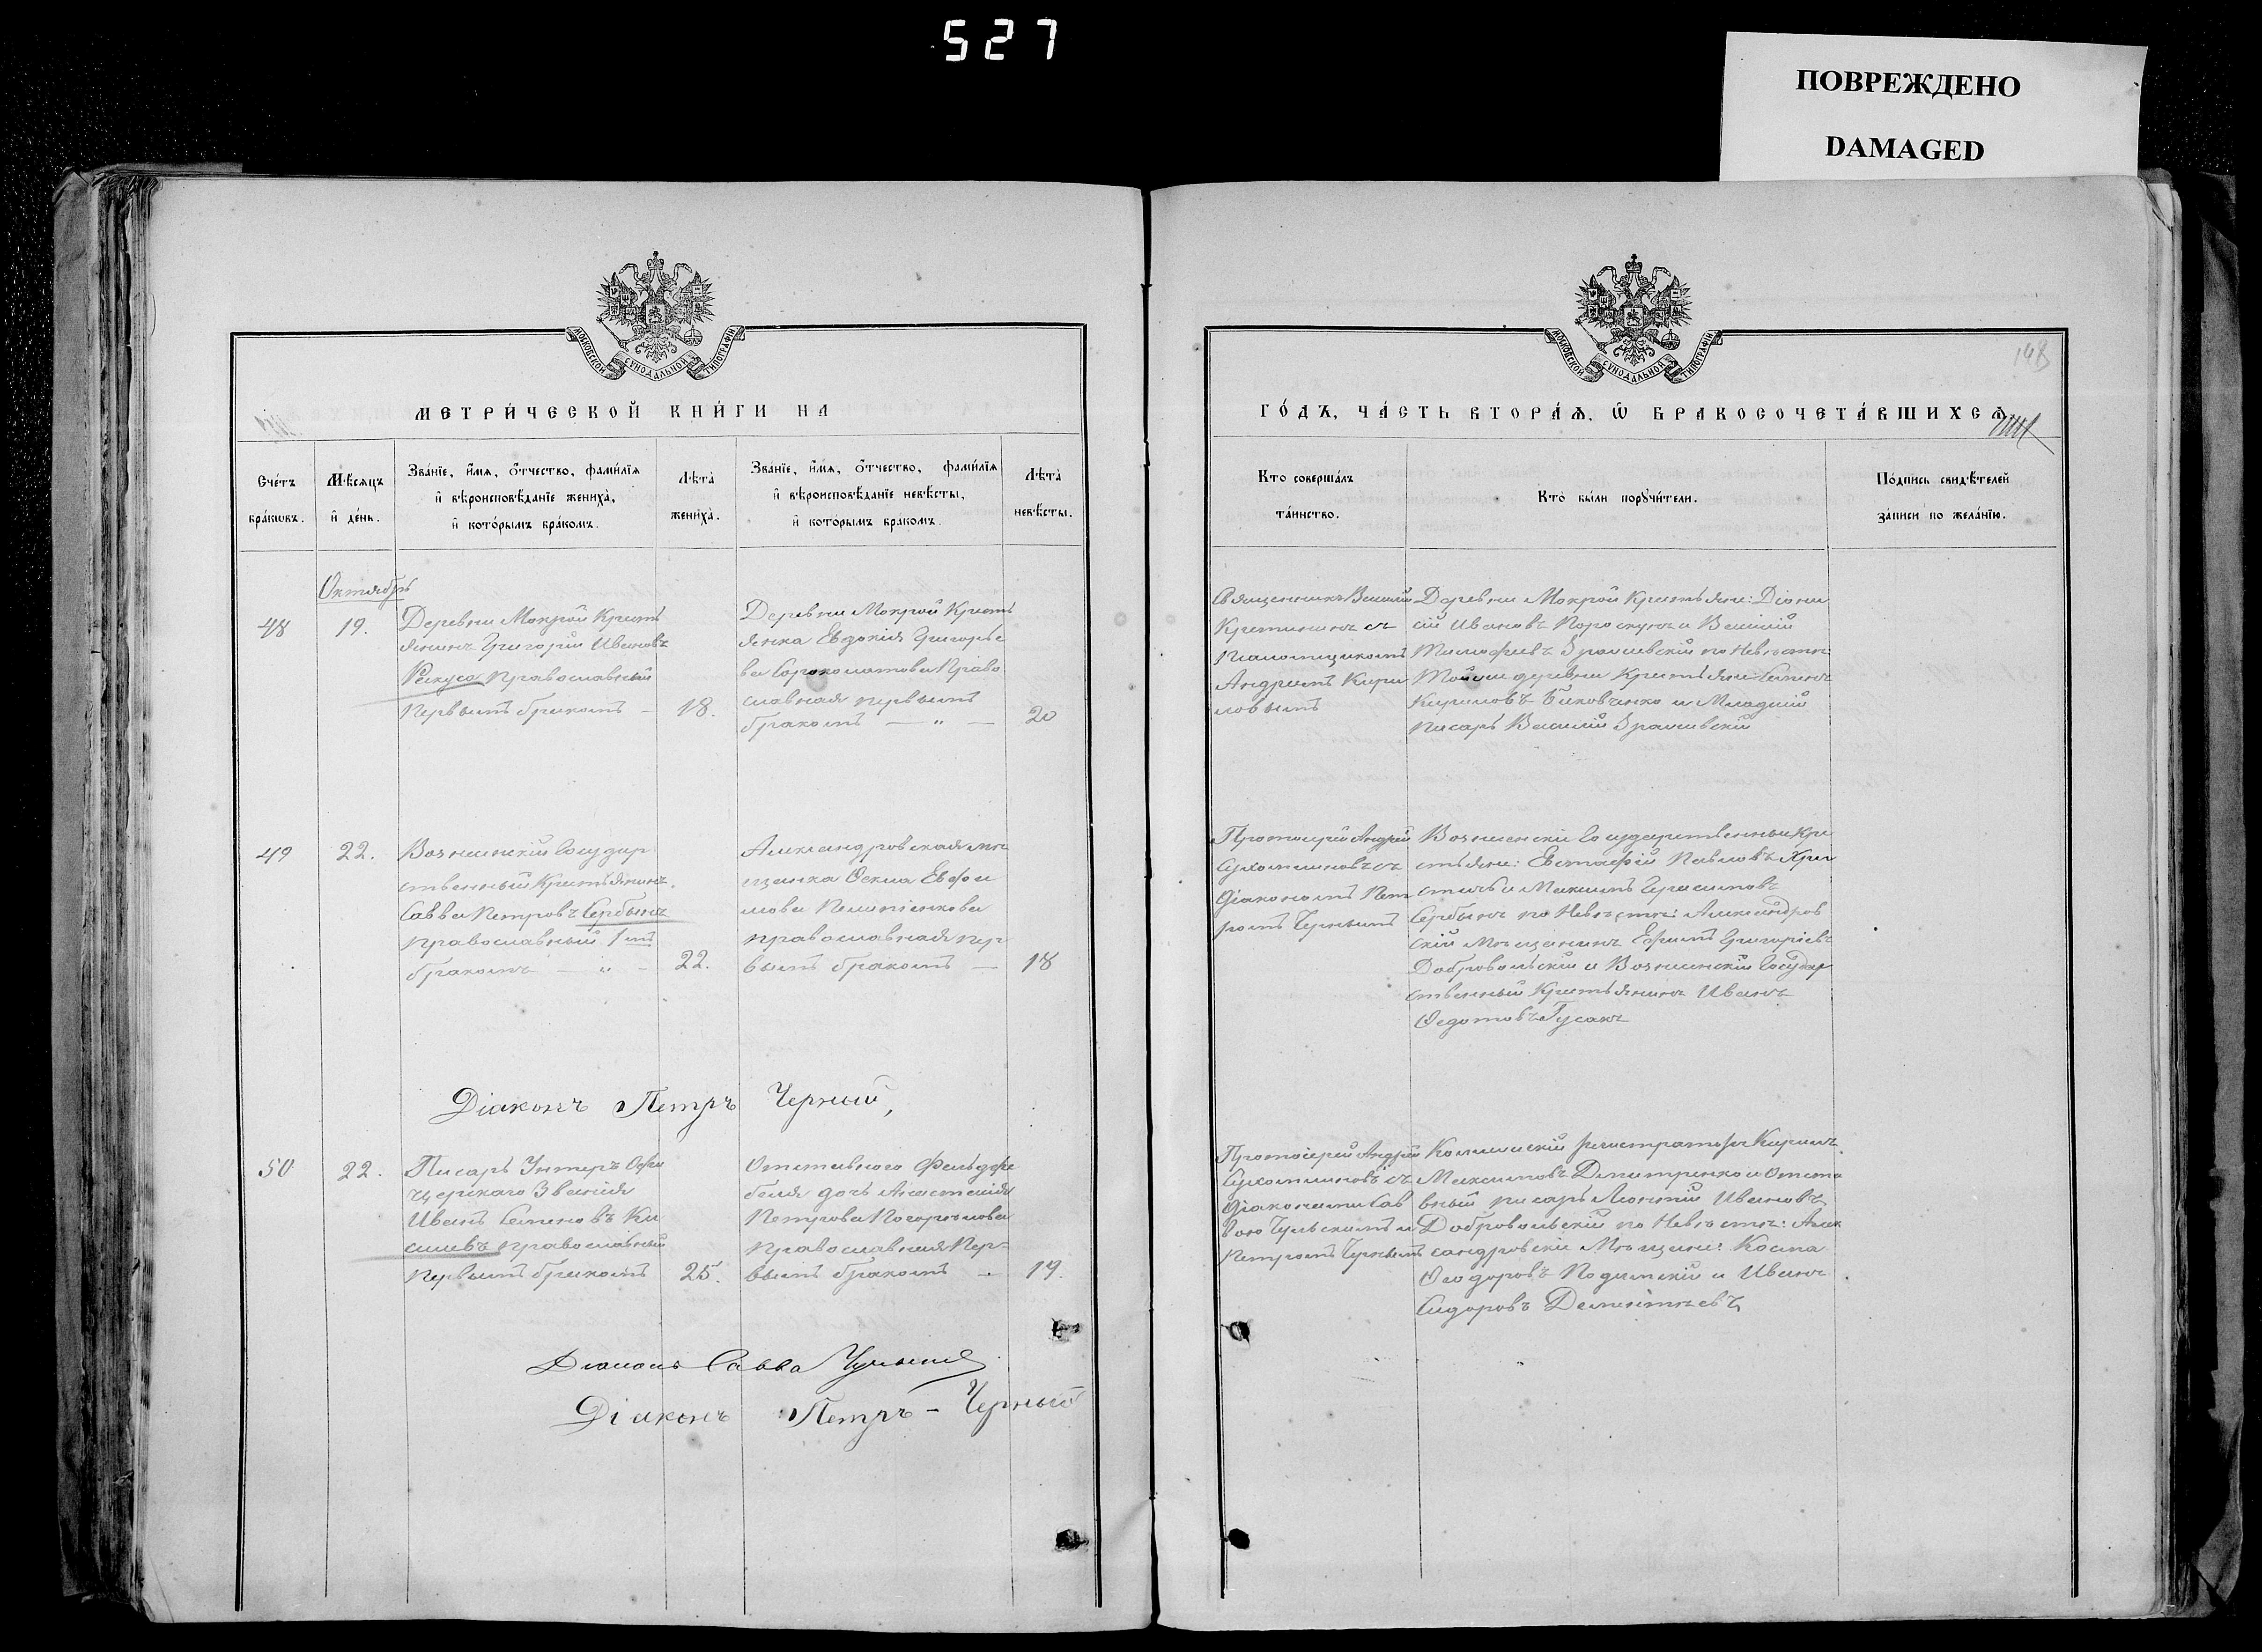 527
ПОВРЕЖДЕНО
DAMAGED
МОСКОВСКОЙ СѴНОДАЛЬНОЙ ТИПОГРАФІИ
МЕТРИ́ЧЕСКОЙ КНИ́ГИ НА
Сче́тъ бра́кѡвъ.
Мѣ́сяцъ и҆ де́нь.
Зва́нїе, и҆́мѧ, ѻ҆́тчество, фамѝлїѧ
и҆ вѣроисповѣ́данїе жениха̀,
и҆ кото́рымъ бра́комъ.
Лѣ́та жениха̀.
Зва́нїе, и҆́мѧ, ѻ҆́тчество, фамѝлїѧ
и҆ вѣроисповѣ́данїе невѣ́сты,
и҆ кото́рымъ бра́комъ.
Лѣ́та невѣ́сты.
Октябрь
48
19.
Деревни Мокрой Кресть
янинъ Григорій Ивановъ
Православный
Первымъ бракомъ —
18.
Деревни Мокрой Кресть
янка Евдокія Григорье
ва Сорокопатова Право
славная первымъ
бракомъ — „ —
20
49
22.
Вознесенскій Государ
ственный Крестьянинъ
Савва Петровъ Сербинъ
православный 1мъ
бракомъ — „ —
22.
Александровская мѣ
щанка Ѳекла Евфи
мова
православная пер
вымъ бракомъ —
18
Діаконъ Петръ Черный,
50
22.
Писарь Унтеръ Офи
церскаго Званія
Иванъ Семеновъ Ки
селевъ православный
первымъ бракомъ
25.
Отставного Фельдфе
беля дочь Анастасія
Петрова Погорѣлова
Православная Пер-
вымъ бракомъ —
19.
Діаконъ Савва
Діаконъ Петръ – Черный
МОСКОВСКОЙ СѴНОДАЛЬНОЙ ТИПОГРАФІИ
ГО́ДЪ, ЧА́СТЬ ВТОРА́Ѧ, Ѡ҆ БРАКОСОЧЕТА́ВШИХСѦ
Кто̀ соверша́лъ
та́инство.
Кто̀ бы́ли порꙋчи́тели.
По́дпись свидѣ́телей
за́писи по жела́нїю.
Священникъ Василій
съ
Псаломщикомъ
Андреемъ Кири
ловымъ
Деревни Мокрой Крестьяне: Діони
сій Ивановъ и Василій
Тимофеевъ по Невѣстѣ:
Тойже деревни Крестьяне Семенъ
Кириловъ Биковченко и Младшій
писарь Василій
Протоіерей Андрей
Сухомлиновъ съ
Діакономъ Пет
ромъ Чернымъ
Вознесенскіе Государственные Кре
стьяне: Евстафій Павловъ
и Максимъ Герасимовъ
Сербинъ по Невѣстѣ: Александров
скій Мѣщанинъ Ефимъ Григоріевъ
Добровольскій и Вознесенскій Государ
ственный Крестьянинъ Иванъ
Ѳедотовъ Гусакъ
Протоіерей Андрей
Сухомлиновъ съ
Діаконами Сав
вою и
Петромъ Чернымъ
Колежскій регистраторъ Кирилъ
Максимовъ Дмитренко и Отста
вный писарь Леонтій Ивановъ
Добровольскій по Невѣстѣ: Алек
сандровскіе Мѣщане: Косма
Ѳеодоровъ и Иванъ
Сидоровъ Дементьевъ